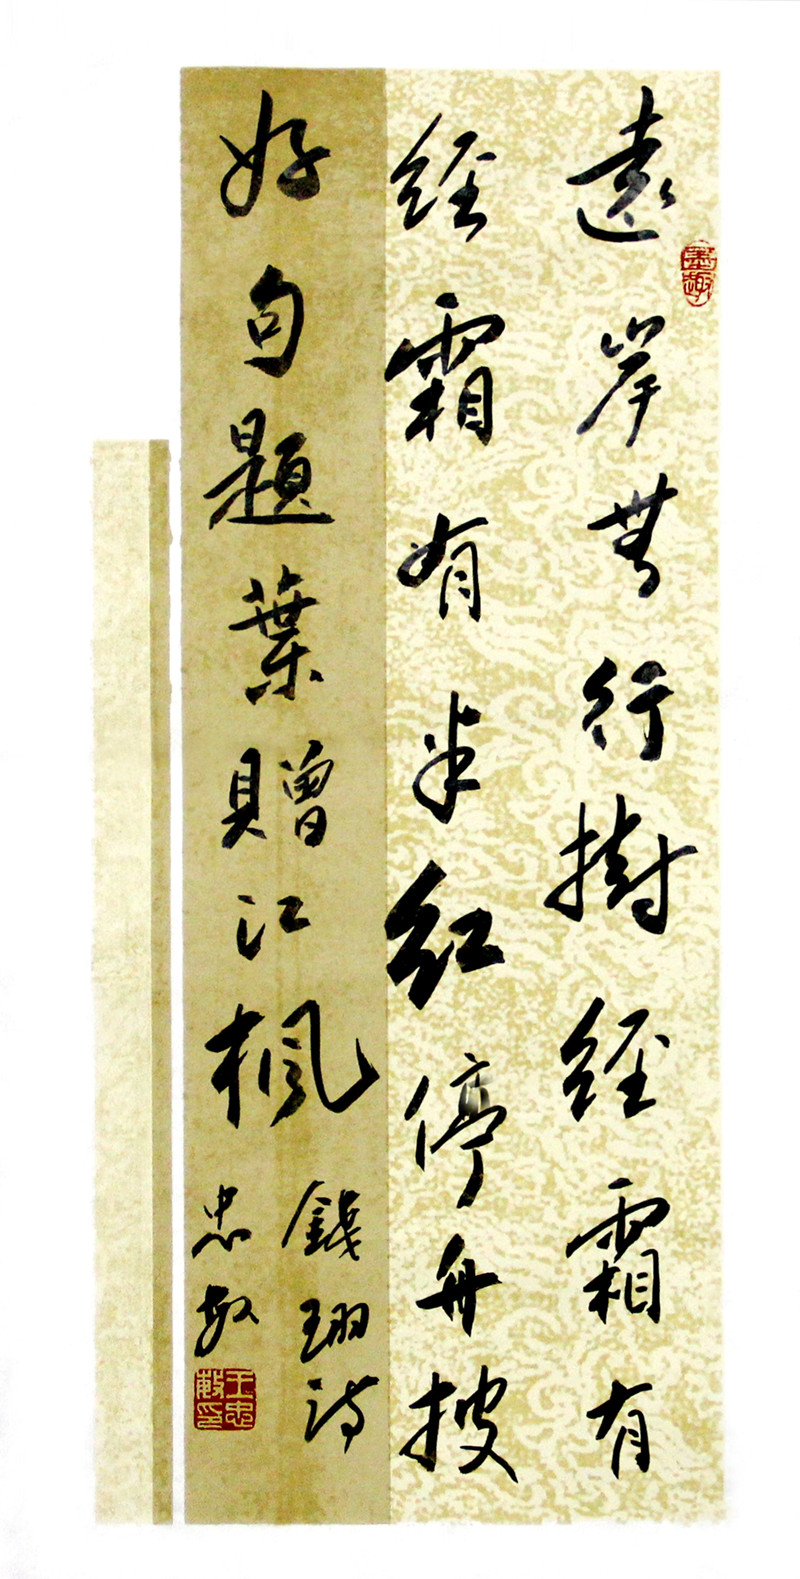 遠岸無行樹經霜有
經霜有半紅停舟搜
好句題葉贈江楓
錢珝詩
忠敏
王忠敏印